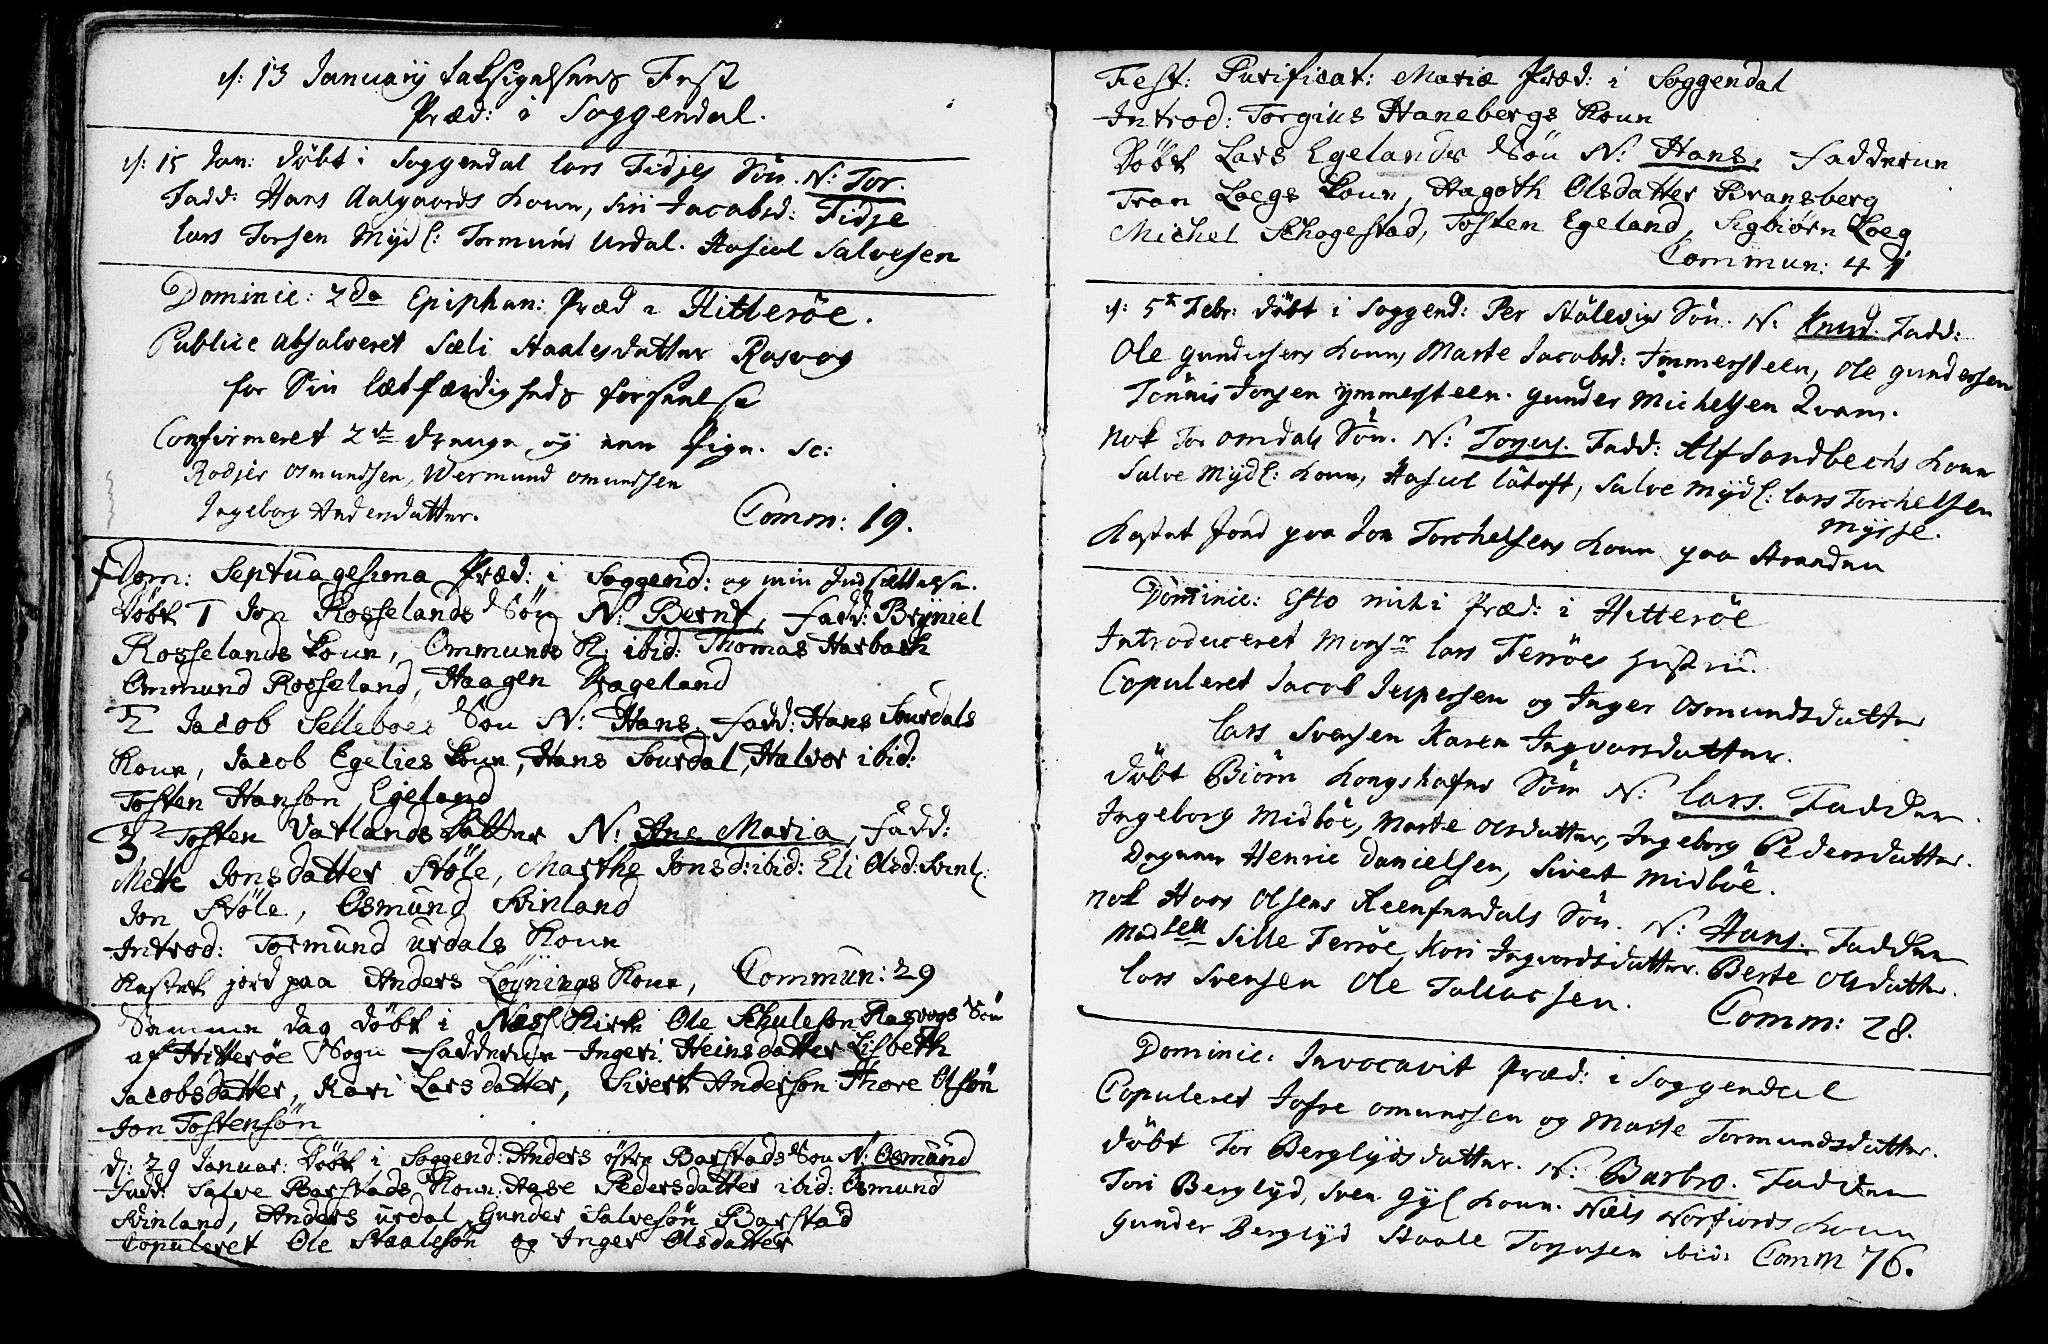 d: 13 Januarij taksigelsens Fest
Præd: i Soggendal.
d: 15 Jan: døbt i Soggendal Lars Fidjes Søn. N: Tor.
Fadd: Hans Aalgaards Koun, Siri Jacobsd: Fidje
Lars Torsen Mydl: Tormund Urdal. Aasuul Salvesen
Dominic: 2da Epiphan: Præd i Hitterøe.
Publice absolveret Sæli Staalesdatter Rasvog
for Sin letfærdigheds forseelse
Confirmeret 2de drenge og een Pige. sc:
Rodjer Osmundsen, Wermund Omundsen
Ingeborg Andersdatter. Comm: 19.
Dom: Septuagesima Præd: i Soggend: og min Indsættelse.
Døbt 1 Jon Rosselands Søn N: Bernt, Fadd: Bryniel
Rosselands Koun, Ommunds K: ibid: Thomas Harbach
Ommund Rosseland, Haagen Trageland
2 Jacob Selleboes Søn N: Hans. Fadd: Hans Suurdals
Koun, Jacob Egelies Koun, Hans Suurdal, Halvor ibid:
Tosten Hanson Egeland
3 Tosten Vatlands Datter N: Ane Maria, Fadd:
Mette Jonsdatter Støle, Marthe Jonsd: ibid: Eli Olsd: Svinl:
Jon Støle, Osmund Svinland
Introd: Tormund Urdals Koun
Kastet jord paa Anders Løynings Koun, Commun: 29
Samme dag døbt i Næss Kirke Ole Schuleson Rasvogs Søn
af Hitterøe Sogn Fadderne Ingeri Heinsdatter Lisbeth
Jacobsdatter, Kari Larsdatter, Sivert Anderson Thore Olsøn
Jon Tostensøn
d: 29 Januar: Døbt i Soggend: Anders østre Barstads Søn N: Osmund
Fadd: Salve Barstads Koun: Aase Pedersdatter ibid: Osmund
Svinland, Anders Urdal, Gunder Salvesøn Barstad
Copuleret Ole Staalesøn og Inger Olsdatter
Fest: Purificat: Mariæ Præd: i Soggendal
Introd: Torgius Hanebergs Koun
Døbt Lars Egelands Søn N: Hans, Fadderne
Tron Loegs Koun, Hagoth Olsdatter Bransberg
Michel Schogestad, Tosten Egeland, Sigbiørn Loeg
Commun: 41
d: 5te Febr: døbt i Soggend: Per Stølevigs Søn. N: Knud. Fadd:
Ole Gundersens Koun, Marte Jacobsd: Immersteen, Ole Gundersen
Tønnis Jonsen Ymmersteen. Gunder Michelsen Qvam.
Nok Tor Omdals Søn. N: Torjus. Fadd: Alf Sandbechs Koun
Salve Mydl: Koun, Aasuul Låtoft, Salve Mydl: Lars Torchelsen
Mysse.
Kastet Jord paa Jon Torchelsens Koun paa Stranden
Dominic: Esto mihi Præd: i Hitterøe
Introduceret Monsr Lars Ferrøes Hustru.
Copuleret Jacob Jespersen og Inger Osmundsdatter
Lars Svensen Karen Ingvorsdatter.
døbt Biørn Kongshafns Søn N: Lars. Fadder
Ingeborg Midbøe, Marte Olsdatter, Ingeborg Pedersdatter.
Degnen Henric Danielsen, Sivert Midbøe.
Nok Hans Olsens Reenfendals Søn. N: Hans. Fadder
Madsell Sille Ferrøe, Kari Ingvordsdatter. Berte Olsdatter.
Lars Svensen Ole Tollacsen.
Comm: 28.
Dominic: Invocavit Præd: i Soggendal
Copuleret Josse Omundsen og Marte Tormundsdatter.
døbt Tor Berglyds datter. N: Barbro. Fadder
Tori Berglyd, Sven Gyl Koun. Niels Norfiords Koun
Gunder Berglyd Staale Torjusen ibid: Comm 76.